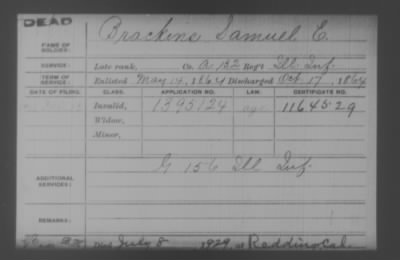 DEAD
NAME OF SOLDIER: Brackins Samuel E.
SERVICE: Late rank, Co. A. 132 Reg't Ill. Inf.
TERM OF SERVICE: Enlisted May 14, 1864 Discharged Oct. 17, 1864
DATE OF FILING. CLASS. APPLICATION NO. LAW. CERTIFICATE NO.
Invalid, 1395124 1164529
Widow,
Minor,
ADDITIONAL SERVICES: G 156 Ill Inf.
REMARKS:
Died July 8, 1929, at Redding, Cal.